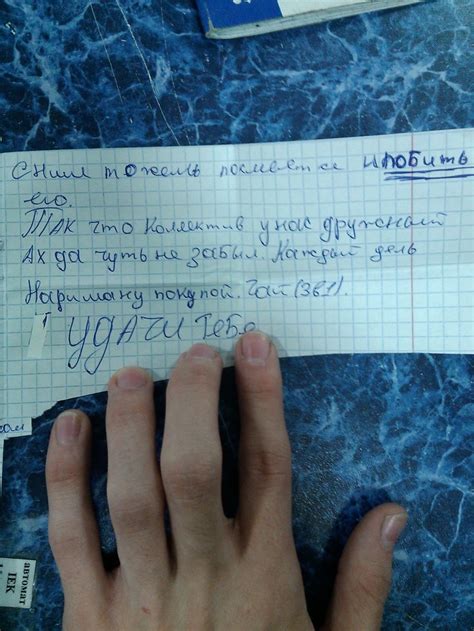 С ним можешь посмеятся и любить
его.
Так что коллектив у нас дружный
Ах да чуть не забыл. Каждый день
Нариману покупой. Чай (3в1).
УДАЧИ тебе
автомат
IEK